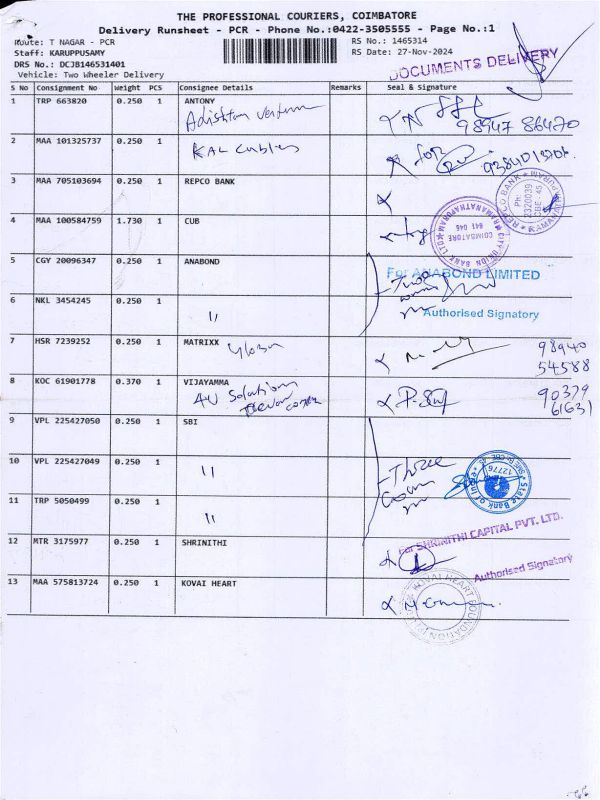 THE PROFESSIONAL COURIERS, COIMBATORE
Delivery Runsheet - PCR - Phone No.:0422-3505555 - Page No.:1
Route: T NAGAR - PCR
RS No.: 1465314
Staff: KARUPPUSAMY
RS Date: 27-Nov-2024
DRS No.: DCJB146531401
Vehicle: Two Wheeler Delivery
DOCUMENTS DELIVERY
S No Consignment No Weight PCS Consignee Details Remarks Seal & Signature
1 TRP 663820 0.250 1 ANTONY
98947 86470
2 MAA 101325737 0.250 1 KAL Cables
for
3 MAA 705103694 0.250 1 REPCO BANK
REPCO BANK
Ph: 2320039
CBE - 45
4 MAA 100584759 1.730 1 CUB
CITY UNION BANK LTD
RAMANATHAPURAM
COIMBATORE
641 045
5 CGY 20096347 0.250 1 ANABOND
For ANABOND LIMITED
Two
6 NKL 3454245 0.250 1 "
Authorised Signatory
7 HSR 7239252 0.250 1 MATRIXX
98940
54588
8 KOC 61901778 0.370 1 VIJAYAMMA
AU Solutions
90379
61631
9 VPL 225427050 0.250 1 SBI
10 VPL 225427049 0.250 1 "
Three
State Bank of India
12776
11 TRP 5050499 0.250 1 "
12 MTR 3175977 0.250 1 SHRINITHI
For SHRINITHI CAPITAL PVT. LTD.
Authorised Signatory
13 MAA 575813724 0.250 1 KOVAI HEART
KOVAI HEART FOUNDATION